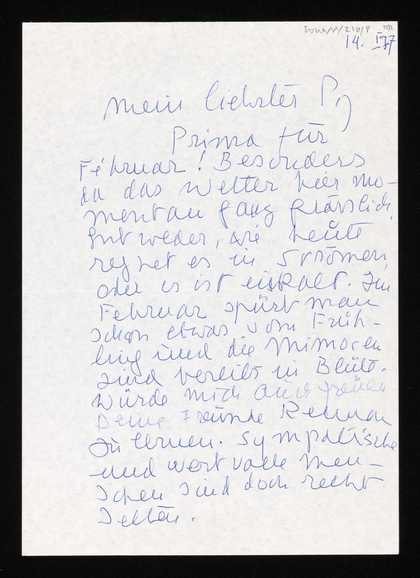 14. I 77
Mein liebster P.,
Prima für
Februar! Besonders
da das Wetter hier mo-
mentan ganz grässlich,
Entweder, wie heute
regnet es in Strömen,
oder es ist eiskalt. Im
Februar spürt man
schon etwas vom Früh-
ling und die Mimosen
sind bereits in Blüte.
Würde mich auch freuen
Deine Freunde kennen
zu lernen. Sympatische
und wertvolle Men-
schen sind doch recht
selten.